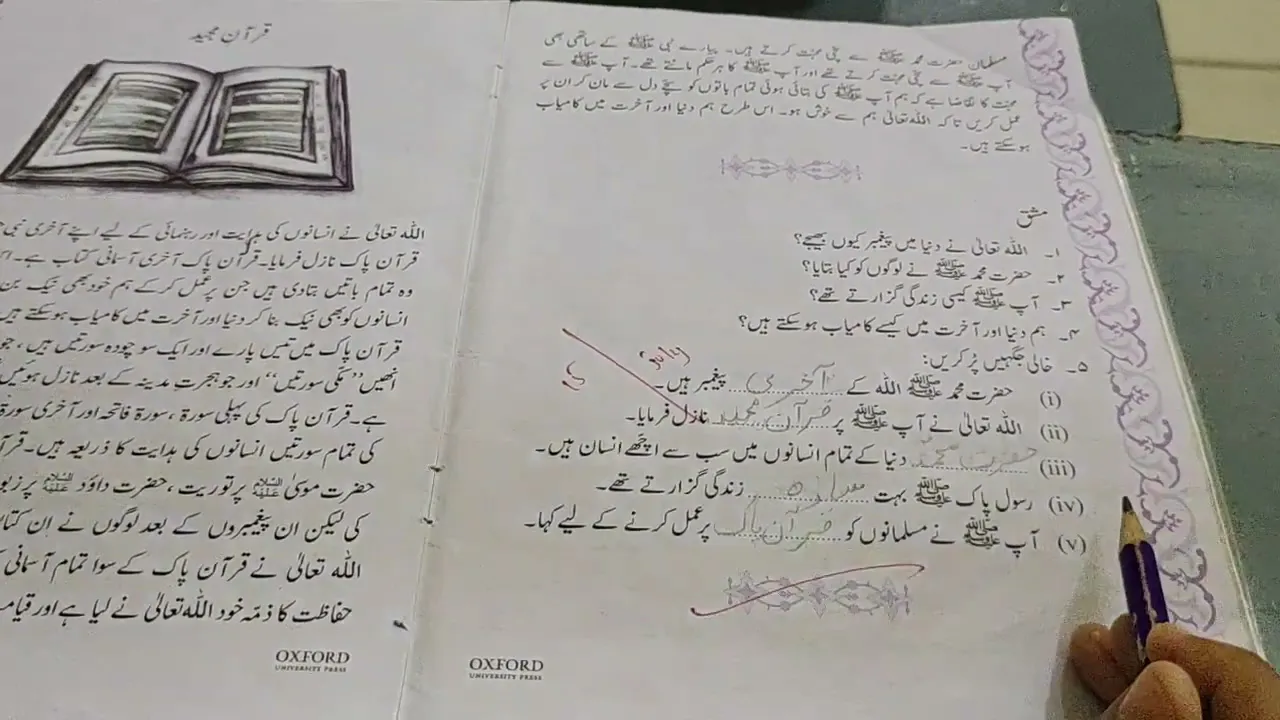 مسلمان حضرت محمد ﷺ سے سچی محبت کرتے ہیں۔ پیارے نبی ﷺ کے ساتھی بھی
آپ ﷺ سے سچی محبت کرتے تھے اور آپ ﷺ کا ہر حکم مانتے تھے۔ آپ ﷺ سے
محبت کا تقاضا ہے کہ ہم آپ ﷺ کی بتائی ہوئی تمام باتوں کو سچے دل سے مان کر ان پر
عمل کریں تاکہ اللہ تعالیٰ ہم سے خوش ہو۔ اس طرح ہم دنیا اور آخرت میں کامیاب
ہوسکتے ہیں۔
مشق
۱۔ اللہ تعالیٰ نے دنیا میں پیغمبر کیوں بھیجے؟
۲۔ حضرت محمد ﷺ نے لوگوں کو کیا بتایا؟
۳۔ آپ ﷺ کیسی زندگی گزارتے تھے؟
۴۔ ہم دنیا اور آخرت میں کیسے کامیاب ہوسکتے ہیں؟
۵۔ خالی جگہیں پُر کریں:
(i) حضرت محمد ﷺ اللہ کے آخری پیغمبر ہیں۔
(ii) اللہ تعالیٰ نے آپ ﷺ پر قرآن مجید نازل فرمایا۔
(iii) حضرت محمدؐ دنیا کے تمام انسانوں میں سب سے اچھے انسان ہیں۔
(iv) رسول پاک ﷺ بہت سادہ زندگی گزارتے تھے۔
(v) آپ ﷺ نے مسلمانوں کو قرآن پاک پر عمل کرنے کے لیے کہا۔
OXFORD
UNIVERSITY PRESS
قرآن مجید
اللہ تعالیٰ نے انسانوں کی ہدایت اور رہنمائی کے لیے اپنے آخری نبی
قرآن پاک نازل فرمایا۔ قرآن پاک آخری آسمانی کتاب ہے۔
وہ تمام باتیں بتادی ہیں جن پر عمل کرکے ہم خود بھی نیک بن
انسانوں کو بھی نیک بنا کر دنیا اور آخرت میں کامیاب ہوسکتے ہیں
قرآن پاک میں تیس پارے اور ایک سو چودہ سورتیں ہیں، جو
انھیں ”مکّی سورتیں“ اور جو ہجرتِ مدینہ کے بعد نازل ہوئیں
ہے۔ قرآن پاک کی پہلی سورۃ، سورۃ فاتحہ اور آخری سورۃ
کی تمام سورتیں انسانوں کی ہدایت کا ذریعہ ہیں۔
حضرت موسیٰ علیہ السلام پر توریت، حضرت داؤد علیہ السلام پر زبور
کی لیکن ان پیغمبروں کے بعد لوگوں نے اِن
اللہ تعالیٰ نے قرآن پاک کے سوا تمام آسمانی
حفاظت کا ذمّہ خود اللہ تعالیٰ نے لیا ہے اور
OXFORD
UNIVERSITY PRESS